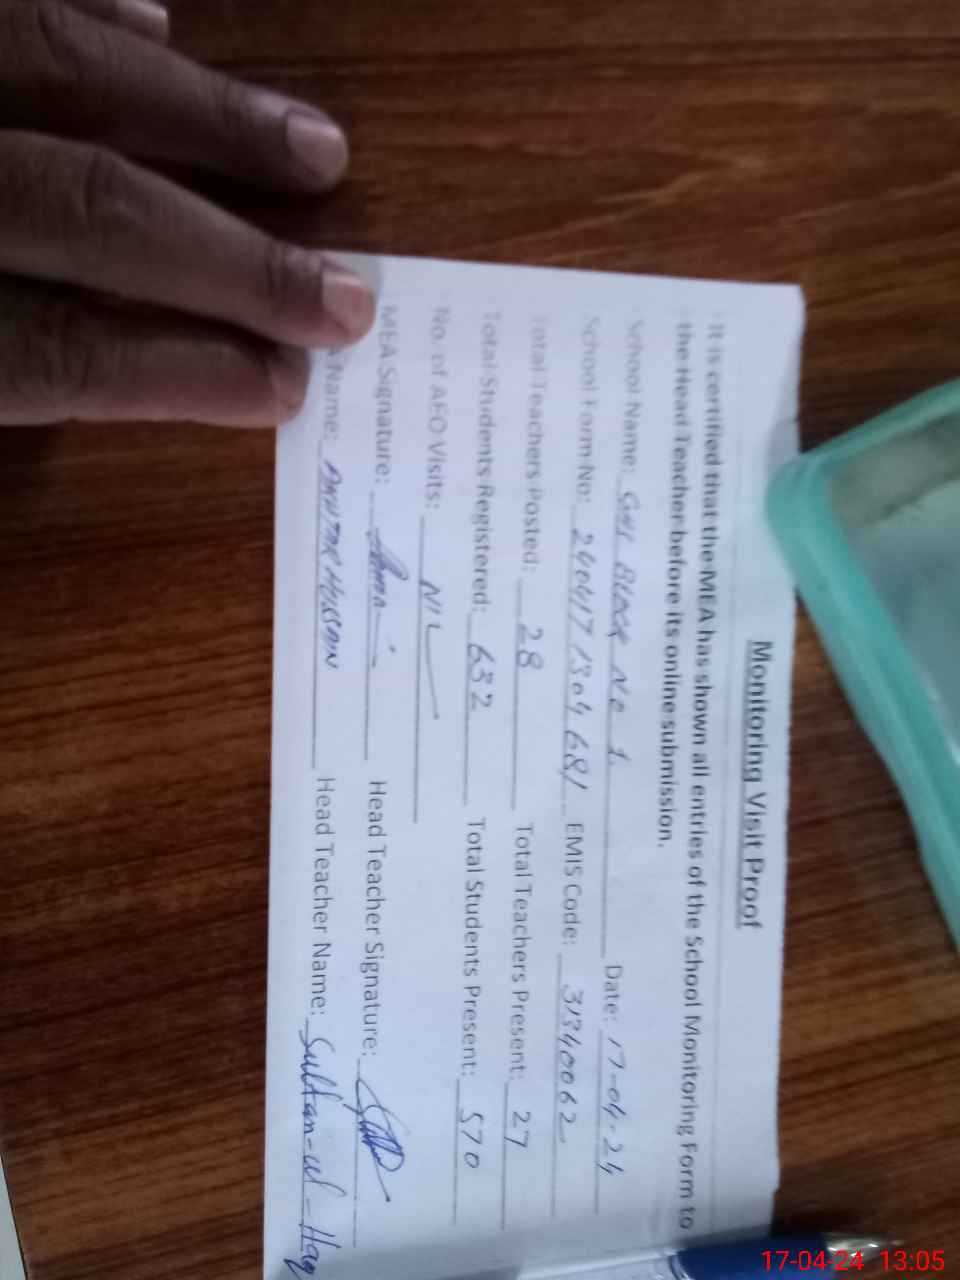 Monitoring Visit Proof
It is certified that the MEA has shown all entries of the School Monitoring Form to
the Head Teacher before its online submission.
School Name: GHS BLOCK No 1. Date: 17-04-24
School Form No: 240417 1304 681 EMIS Code: 31340062
Total Teachers Posted: 28 Total Teachers Present: 27
Total Students Registered: 632 Total Students Present: 570
No. of AEO Visits: NIL
MEA Signature: Head Teacher Signature:
A Name: HUSSAIN Head Teacher Name: Sultan-ul-Haq
17-04-24 13:05